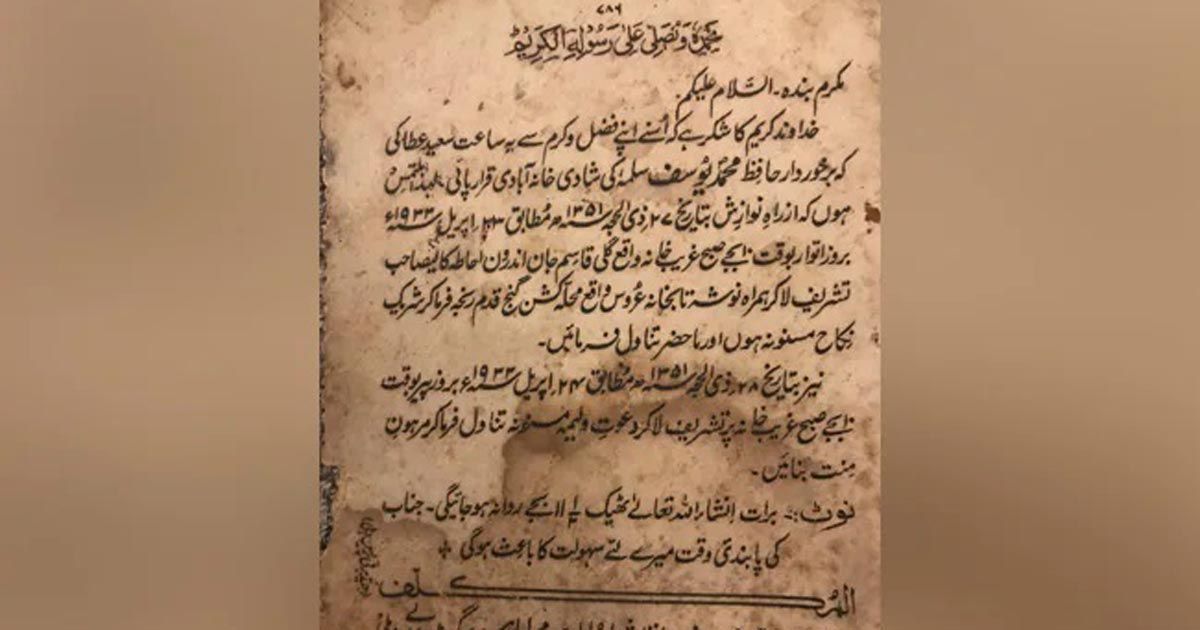 ۷۸۶
نحمدہ ونصلی علیٰ رسولہ الکریم
مکرم بندہ ۔ السلام علیکم
خداوند کریم کا شکر ہے کہ اُسنے اپنے فضل وکرم سے یہ ساعت سعید عطا کی
کہ برخوردار حافظ محمد یوسف سلمہٗ کی شادی خانہ آبادی قرار پائی ۔ لہذا ملتمس
ہوں کہ از راہِ نوازش بتاریخ ۲۷؍ ذی الحجہ ۱۳۵۱ھ مُطابق ۲۳؍ اپریل ۱۹۳۳ء
بروز اتوار بوقت ۱۰ بجے صبح غریب خانہ واقع گلی قاسم جان اندرون احاطہ کالیصاحب
تشریف لاکر ہمراہ نوشہ تا بخانہ عروس واقع محلہ کشن گنج قدم رنجہ فرماکر شریک
نِکاح مسنونہ ہوں اور ماحضر تناول فرمائیں ۔
نیز بتاریخ ۲۸؍ ذی الحجہ ۱۳۵۱ھ مُطابق ۲۴؍ اپریل ۱۹۳۳ء بروز پیر بوقت
۱۰ بجے صبح غریب خانہ پر تشریف لاکر دعوتِ ولیمہ مسنونہ تناول فرماکر مرہونِ
مِنت بنائیں ۔
نوٹ :۔ برات اِنشاء اللہ تعالےٰ ٹھیک ۱۱ بجے روانہ ہوجائیگی ۔ جناب
کی پابندی وقت میرے لئے سہولت کا باعث ہوگی
المکلف